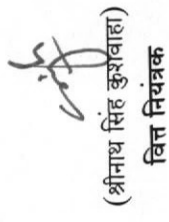 (श्रीनाथ सिंह कुशवाहा)
वित्त नियंत्रक